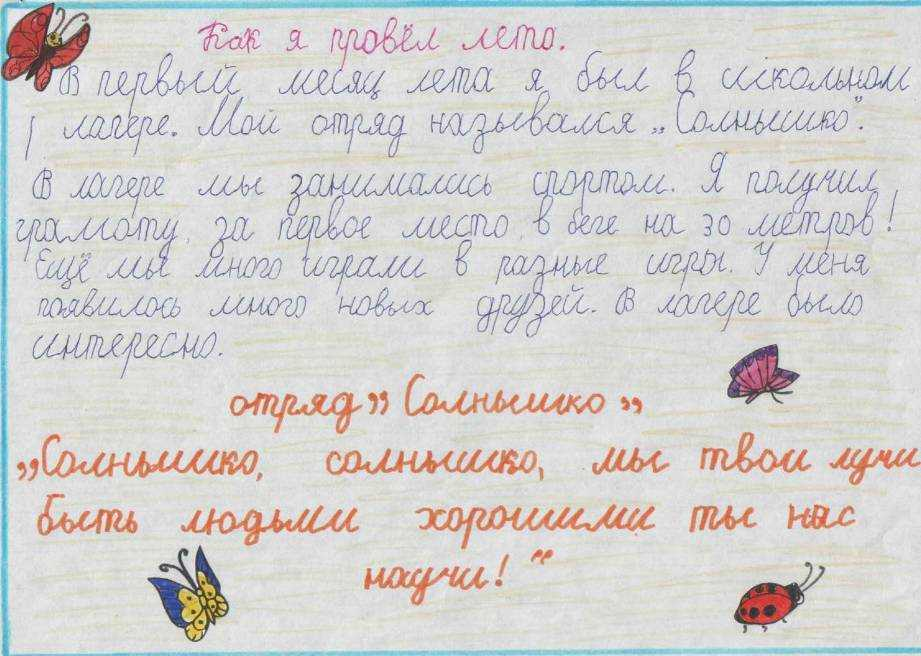 Как я провёл лето.
В первый месяц лета я был в школьном
лагере. Мой отряд назывался „Солнышко".
В лагере мы занимались спортом. Я получил
грамоту за первое место в беге на 30 метров!
Ещё мы много играли в разные игры. У меня
появилось много новых друзей. В лагере было
интересно.
отряд „Солнышко„
„Солнышко, солнышко, мы твои лучи
быть людьми хорошими ты нас
научи!"